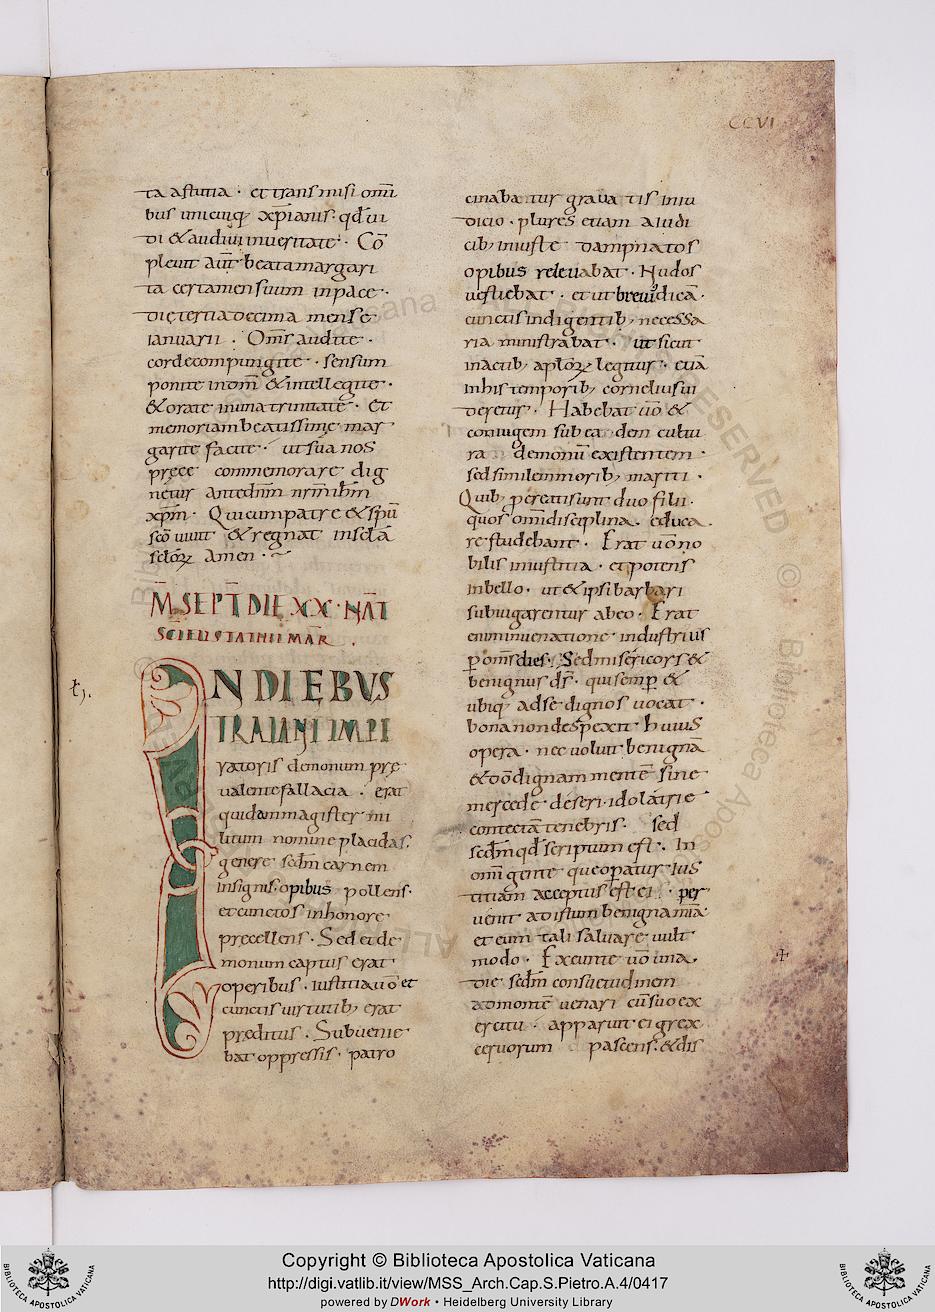 CCVI
ta astutia · et transmisi omī
bus unicuiq; xp̄ianis · qd̄ ui
di & audiui inueritate · Cō
pleuit aūt beatamargari
ta certamen suum inpace ·
die tertiadecima mense
ianuarii · Om̄s audite ·
corde conpungite · sensum
ponite
& orate inuna trinitate · Et
memoriam beatissimę mar
garite facite · ut sua nos
prece commemorare dig
netur antednm̄ nrm̄ ihm̄
xpm̄ · Qui cumpatre & spū
scō uiuit & regnat insclā
sclōrꝝ amen · ~
M̄ SEPT̄ DIE XX · NAT̄
SC̄I EUSTATHII MAR̄ .
IN DIEBUS
TRAIANI IMPE
ratoris demonum prę
ualente fallacia · erat
quidam magister mi
litum nomine placidas ·
genere scdm̄ carnem
insignis · opibus pollens ·
et cunctos inhonore
precellens · Sed et de
monum captus erat
operibus · iustitia uō et
cunctis uirtutib; erat
preditus · Subuenie
bat oppressis · patro
cinabatur grauatis iniu
dicio · plures etiam a iudi
cib; iniuste dampnatos
opibus releuabat · Nudos
uestiebat · et ut breui dicā ·
cunctis indigentib; necessa
ria ministrabat · ut sicut
inactib; aplōrꝝ legitur · etiā
inhis temporib; cornelius ui
deretur · Habebat uō &
coniugem sub ea dem cultu
ra demonū existentem ·
sed similem morib; mariti ·
Quib; p̄creati sunt duo filii ·
quos omī disciplina · educa
re studebant · Erat uō no
bilis iniustitia · et potens
inbello · ut & ipsi barbari
subiugarentur abeo · Erat
enim inuenatione industrius
p̄ om̄s dies · Sed misericors &
benignus ds̄ · qui semp̄ &
ubiq; adse dignos uocat ·
bona non despexit huius
opera · nec uoluit benignā
& dō dignam mentē sine
mercede deseri · idolatrie
contectā tenebris · sed
scdm̄ qd̄ scriptum est · In
omī gente qui operatur ius
titiam acceptus est ei · per
uenit ad istum benigna mīa ·
et eum tali saluare uult
modo · Exeunte uō una
die scdm̄ consuetudinem
ad montē uenari cū suo ex
ercitu · apparuit ei grex
ceruorum pascens · & dis
Copyright © Biblioteca Apostolica Vaticana
http://digi.vatlib.it/view/MSS_Arch.Cap.S.Pietro.A.4/0417
powered by DWork • Heidelberg University Library
BIBLIOTECA APOSTOLICA VATICANA
BIBLIOTECA APOSTOLICA VATICANA